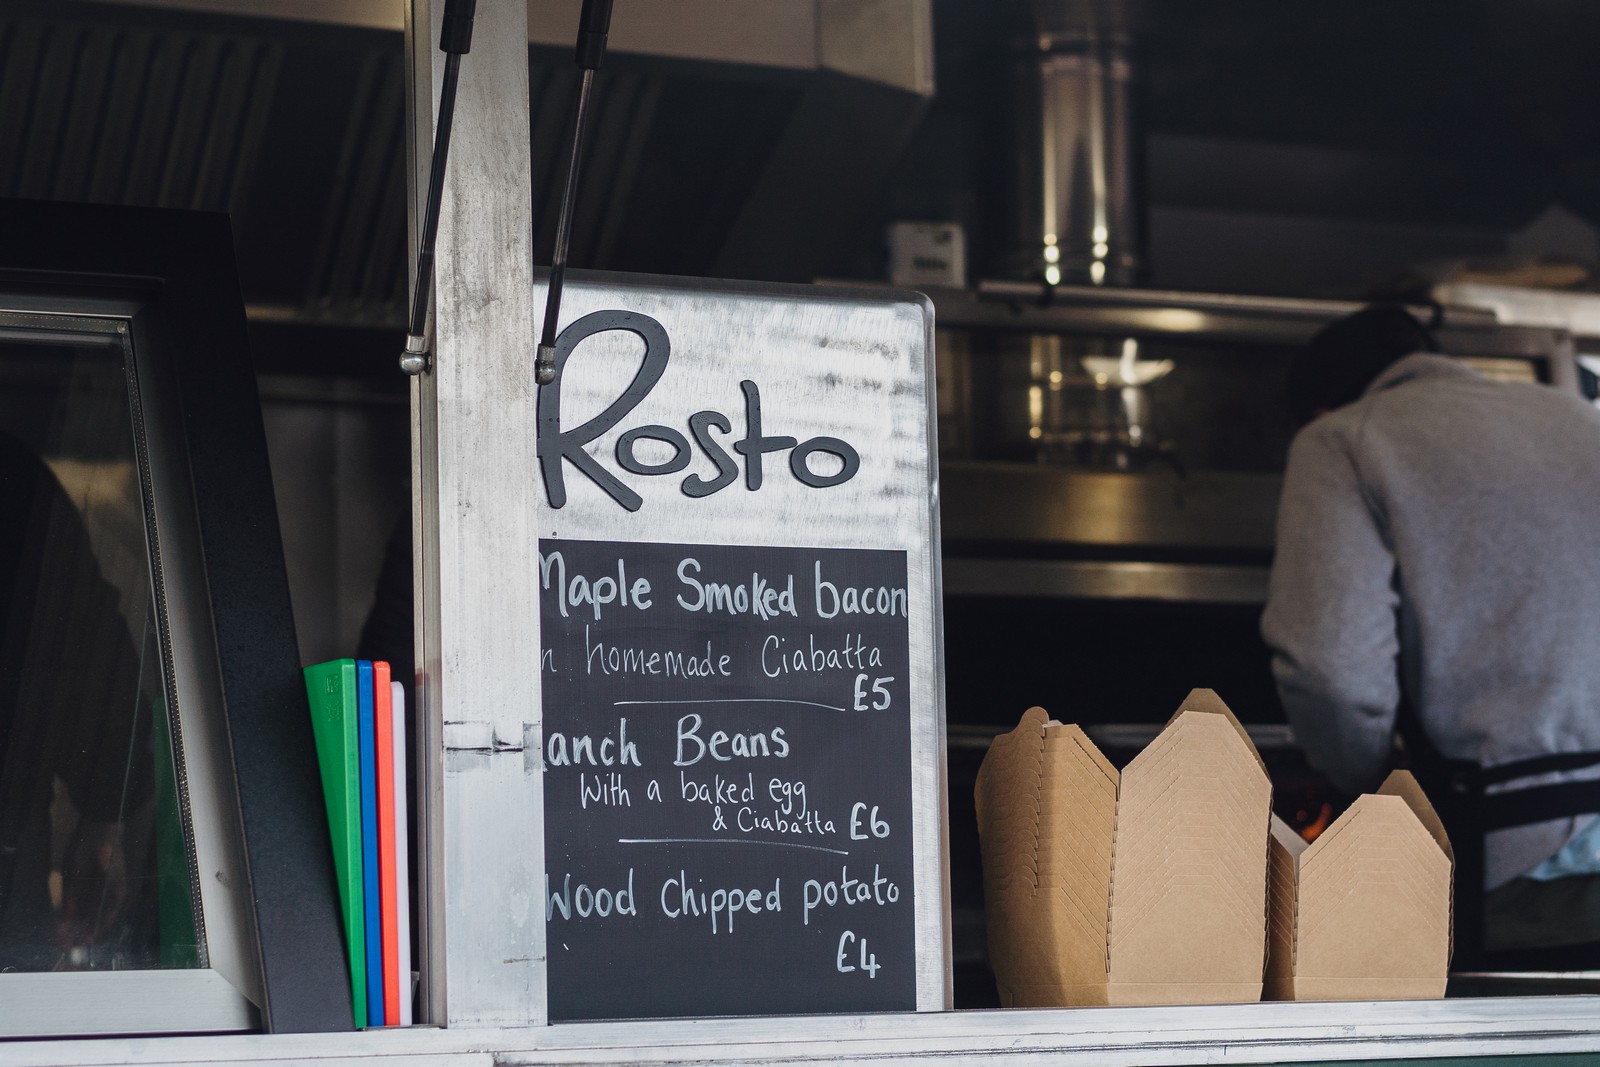 Rosto
Maple Smoked bacon
n homemade Ciabatta
£5
anch Beans
With a baked egg
& Ciabatta £6
Wood Chipped potato
£4